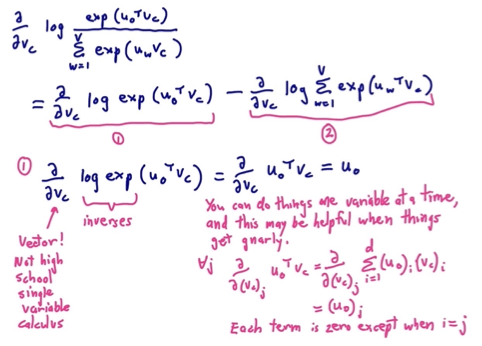 ∂/∂v_c log exp(u_o^T v_c) / Σ_{w=1}^{V} exp(u_w v_c)
= ∂/∂v_c log exp(u_o^T v_c) − ∂/∂v_c log Σ_{w=1}^{V} exp(u_w^T v_c)
① ②
① ∂/∂v_c log exp(u_o^T v_c) = ∂/∂v_c u_o^T v_c = u_o
inverses
Vector!
Not high
school
single
variable
calculus
You can do things one variable at a time,
and this may be helpful when things
get gnarly.
∀j ∂/∂(v_c)_j u_o^T v_c = ∂/∂(v_c)_j Σ_{i=1}^{d} (u_o)_i (v_c)_i
= (u_o)_j
Each term is zero except when i = j